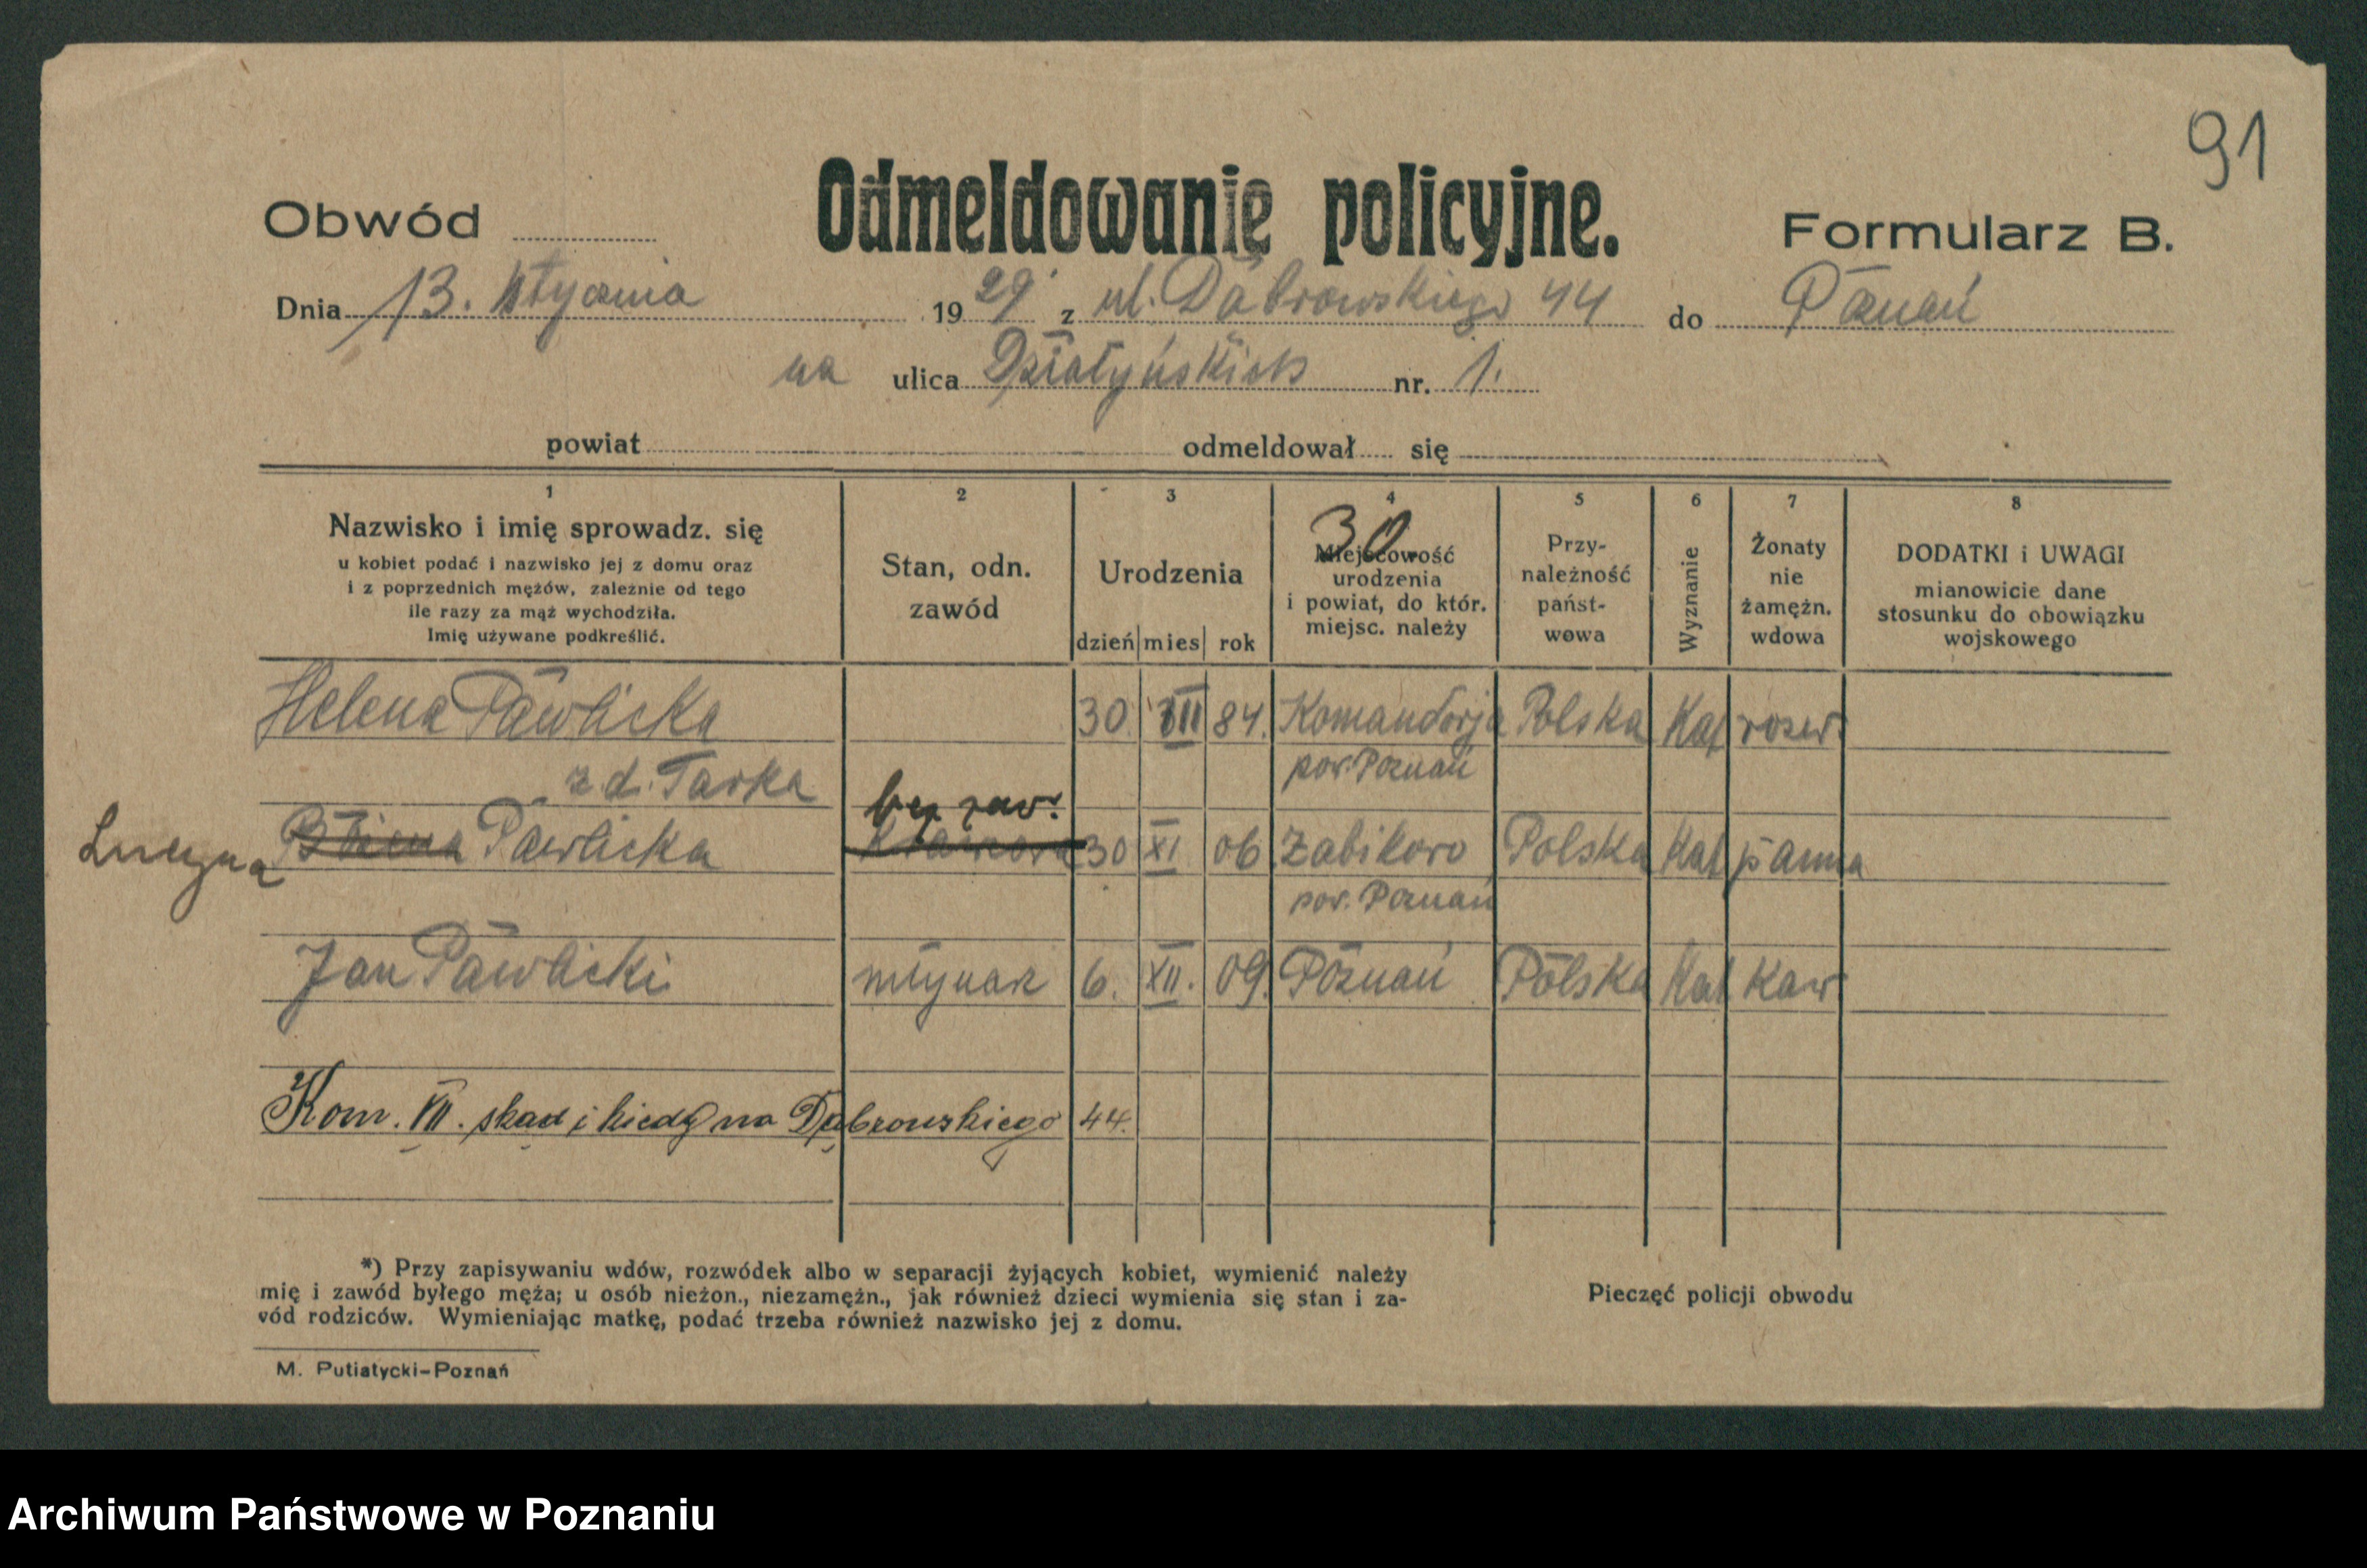 91
Obwód Odmeldowanie policyjne. Formularz B.
Dnia 13. stycznia 1929 z ul. Dąbrowskiego 44 do Poznań
na ulica Działyńskich nr. 1.
powiat odmeldował się
1 2 3 4 5 6 7 8
30
Nazwisko i imię sprowadz. się
u kobiet podać i nazwisko jej z domu oraz
i z poprzednich mężów, zależnie od tego
ile razy za mąż wychodziła.
Imię używane podkreślić.
Stan, odn.
zawód
Urodzenia
dzień mies rok
Miejscowość
urodzenia
i powiat, do któr.
miejsc. należy
Przy-
należność
państ-
wowa
Wyznanie
Żonaty
nie
żamężn.
wdowa
DODATKI i UWAGI
mianowicie dane
stosunku do obowiązku
wojskowego
Helena Pawlicka 30. VIII 84. Komandorja Polska Kat rozw.
z d. Tarka pow. Poznań
bez zaw.
Lucyna Pawlicka 30 XI 06. Żabikowo Polska Kat panna
pow. Poznań
Jan Pawlicki młynarz 6. XII. 09. Poznań Polska Kat Kaw
Kom. VII. skąd i kiedy na Dąbrowskiego 44.
*) Przy zapisywaniu wdów, rozwódek albo w separacji żyjących kobiet, wymienić należy
mię i zawód byłego męża; u osób nieżon., niezamężn., jak również dzieci wymienia się stan i za-
vód rodziców. Wymieniając matkę, podać trzeba również nazwisko jej z domu.
Pieczęć policji obwodu
M. Putiatycki-Poznań
Archiwum Państwowe w Poznaniu